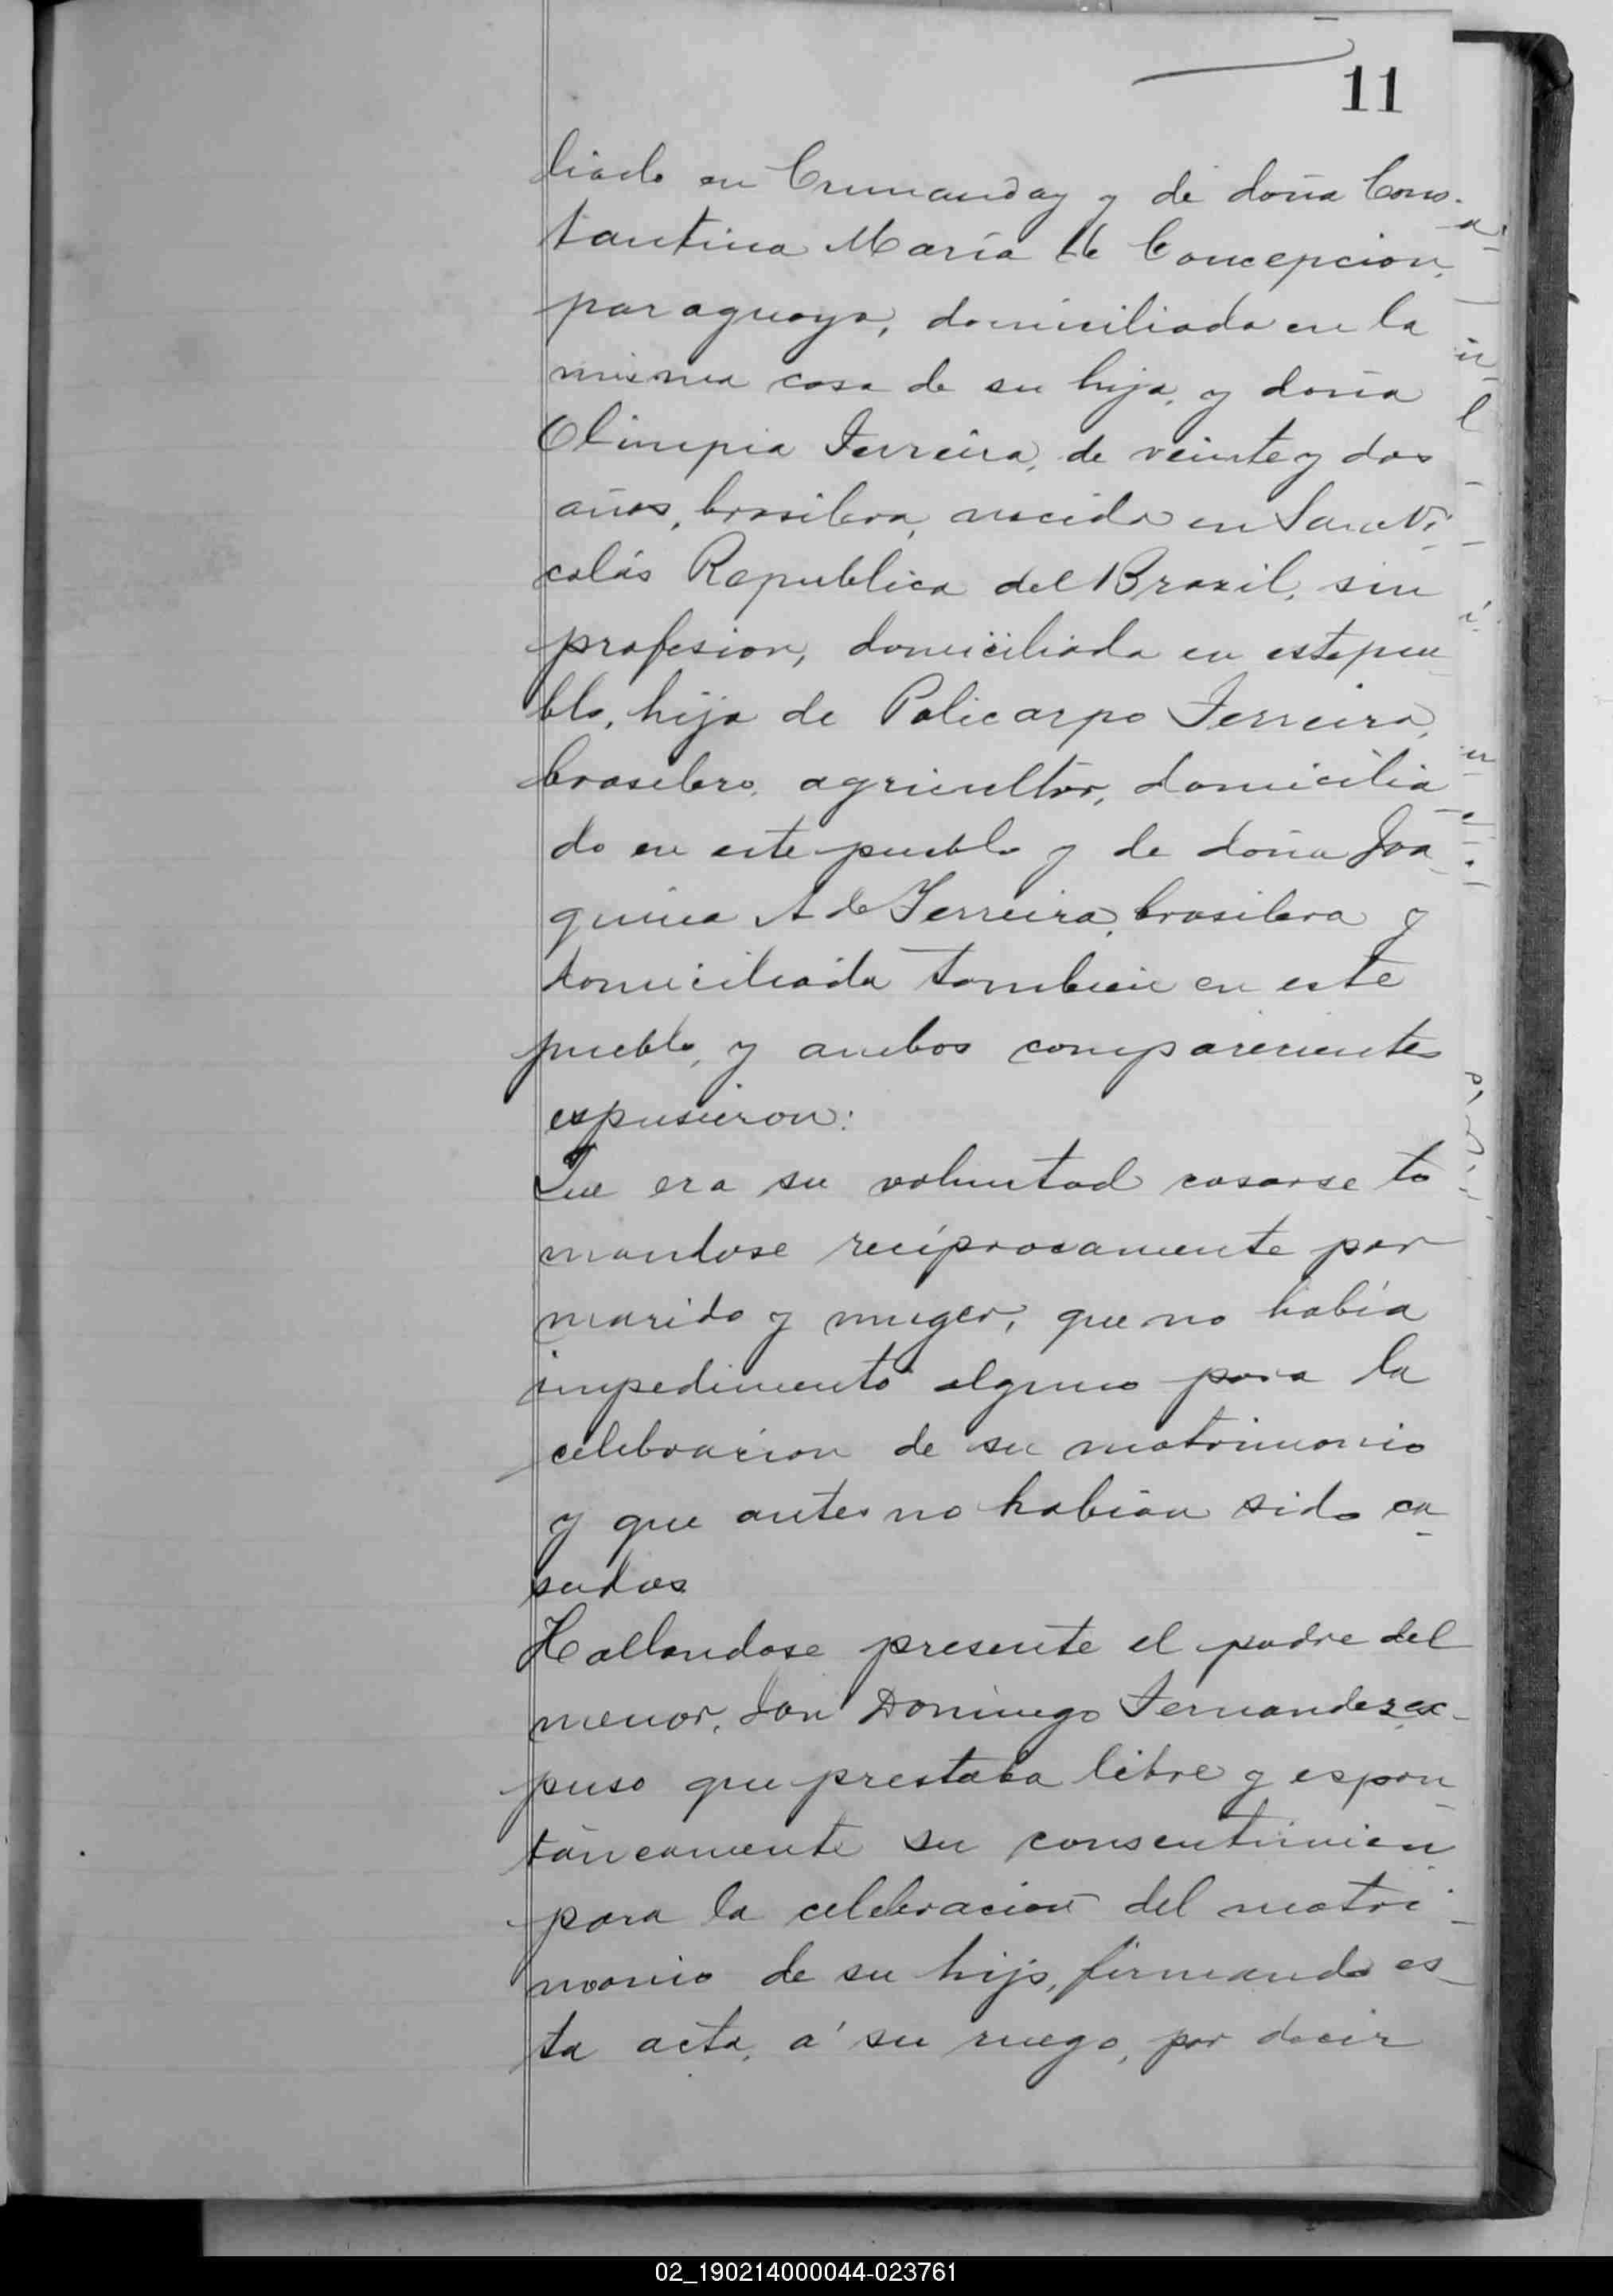 11
liado en Cumanday y de doña Cons-
tantina María de Concepcion,
paraguaya, domiciliada en la
misma casa de su hija, y doña
Olimpia Ferreira, de veinte y dos
años, brasilera, nacida en San Ni-
colás Republica del Brazil, sin
profesion, domiciliada en este pue-
blo, hija de Policarpo Ferreira,
brasilero, agricultor, domicilia-
do en este pueblo y de doña Joa-
quina A de Ferreira, brasilera y
domiciliada tambien en este
pueblo, y ambos comparecientes
espusieron:
Que era su voluntad casarse to
mandose recíprocamente por
marido y muger, que no había
impedimento alguno para la
celebracion de su matrimonio
y que antes no habian sido ca-
sados
Hallandose presente el padre del
menor, don Domingo Fernandez ex-
puso que prestaba libre y espon-
táneamente su consentimien
para la celebracion del matri-
monio de su hijo, firmando es-
ta acta, á su ruego, por decir
02_190214000044-023761